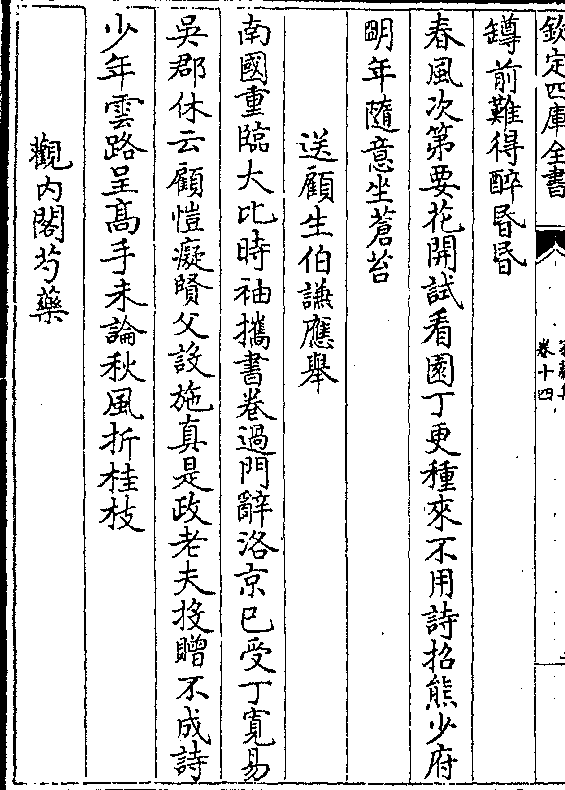 欽定四庫全書
卷十四
罇前難得醉昬昬
春風次第要花開試看園丁更種來不用詩招熊少府
明年隨意坐蒼苔
送顧生伯謙應舉
南國重臨大比時袖攜書卷過門辭洛京已受丁寛易
吳郡休云顧愷癡賢父設施真是政老夫投贈不成詩
少年雲路呈髙手未論秋風折桂枝
觀内閣芍藥